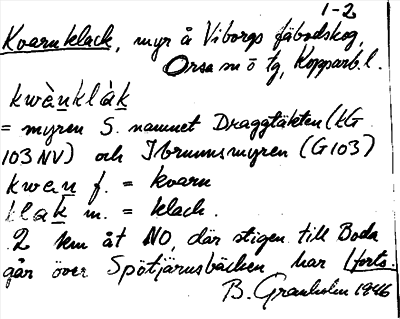 1-2
Kvarnklack, myr å Viborgs fäbodskog,
Orsa m ö tg, Kopparb l.
kwànklàk
= myren S. namnet Draggtäkten (kG
103 NV) och Ibrunnsmyren (G103)
kwen f. = kvarn
klak m. = klack.
2 km åt NO, där stigen till Boda
går över Spötjärnsbäcken har |forts.
B. Granholm 1946